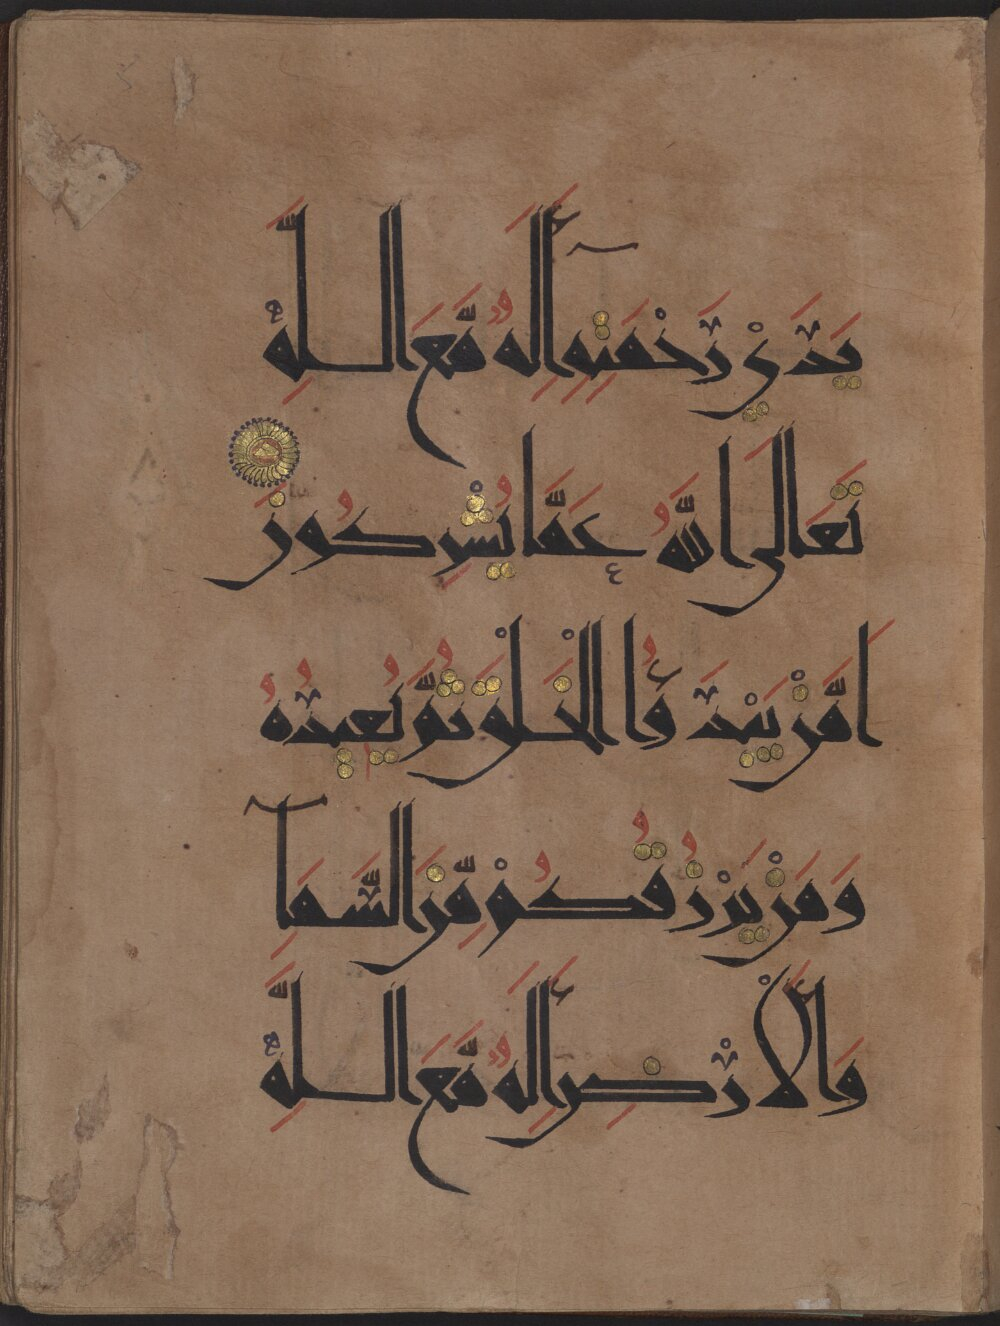 يَدَيْ رَحْمَتِهِ أَإِلَهٌ مَّعَ اللَّهِ
تَعَالَى اللَّهُ عَمَّا يُشْرِكُونَ
اَمَّنْ يَبْدَؤُا الْخَلْقَ ثُمَّ يُعِيدُهُ
وَمَنْ يَرْزُقُكُمْ مِّنَ السَّمَآ
وَالْأَرْضِ أَإِلَهٌ مَّعَ اللَّهِ